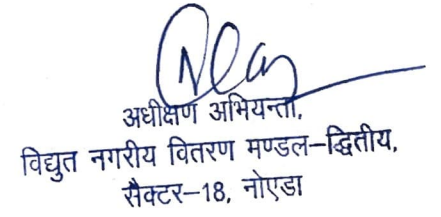 अधीक्षण अभियन्ता,
विद्युत नगरीय वितरण मण्डल–द्धितीय,
सैक्टर–18, नोएडा